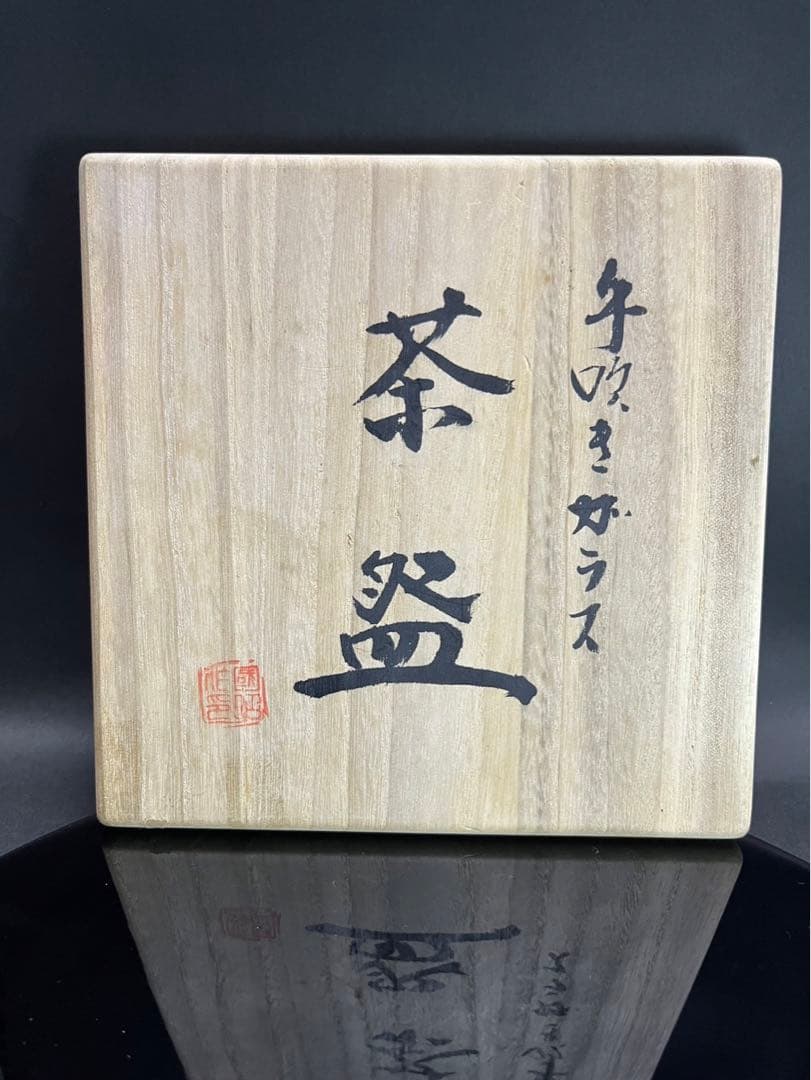 手吹きガラス
茶盌